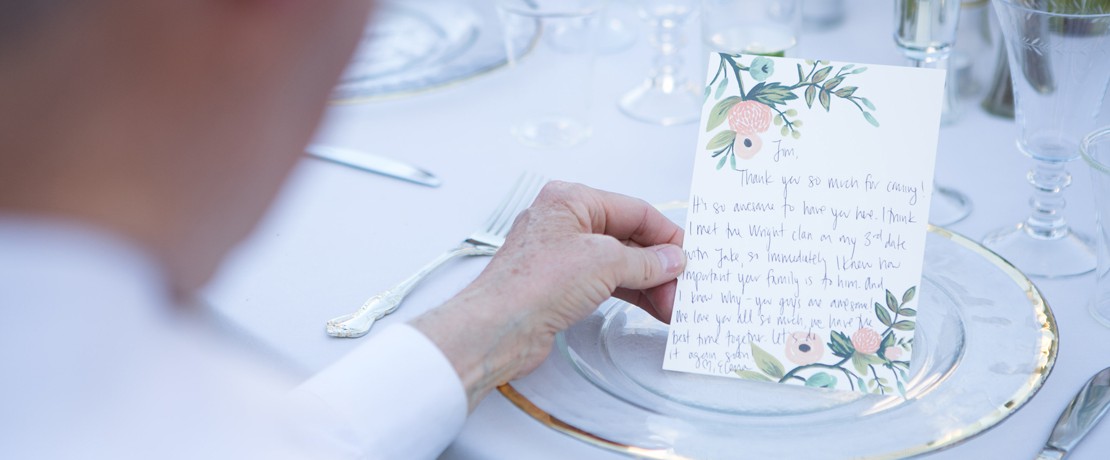 Jim,
Thank you so much for coming!
It's so awesome to have you here. I think
I met the Wright clan on my 3rd date
with Jake, so immediately I knew how
important your family is to him and
I know why - you guys are awesome!
We love you all so much, we have the
best time together. Let's do
it again soon